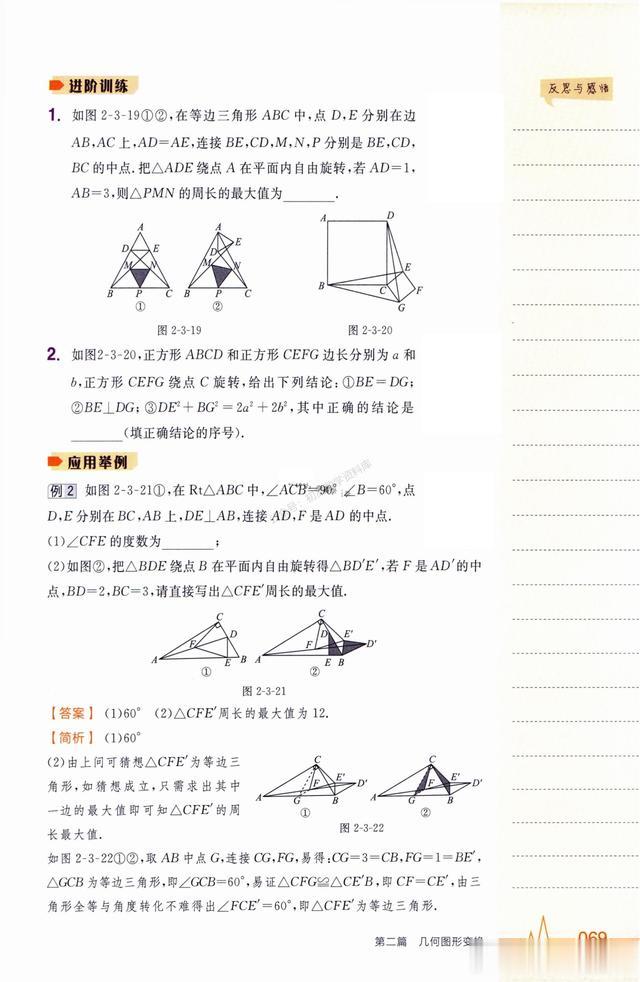 进阶训练
反思与感悟
1. 如图2-3-19①②,在等边三角形 ABC 中,点 D,E 分别在边
AB,AC 上,AD=AE,连接 BE,CD,M,N,P 分别是 BE,CD,
BC 的中点.把△ADE 绕点 A 在平面内自由旋转,若 AD=1,
AB=3,则△PMN 的周长的最大值为______.
A
D E
M N
B P C
①
A
D E
M N
B P C
②
A D
B C E
F
G
图 2-3-19
图 2-3-20
2. 如图2-3-20,正方形 ABCD 和正方形 CEFG 边长分别为 a 和
b,正方形 CEFG 绕点 C 旋转,给出下列结论:①BE=DG;
②BE⊥DG;③DE²+BG²=2a²+2b²,其中正确的结论是
______(填正确结论的序号).
应用举例
例2 如图 2-3-21①,在 Rt△ABC 中,∠ACB=90°,∠B=60°,点
D,E 分别在 BC,AB 上,DE⊥AB,连接 AD,F 是 AD 的中点.
(1)∠CFE 的度数为______;
(2)如图②,把△BDE 绕点 B 在平面内自由旋转得△BD′E′,若 F 是 AD′的中
点,BD=2,BC=3,请直接写出△CFE′周长的最大值.
C
D
F
A E B
①
C
D E′
F D′
A E B
②
图 2-3-21
【答案】 (1)60° (2)△CFE′周长的最大值为 12.
【简析】 (1)60°
(2)由上问可猜想△CFE′为等边三
角形,如猜想成立,只需求出其中
一边的最大值即可知△CFE′的周
长最大值.
C
E′
F D′
A G B
①
C
E′
F D′
A G B
②
图 2-3-22
如图 2-3-22①②,取 AB 中点 G,连接 CG,FG,易得:CG=3=CB,FG=1=BE′,
△GCB 为等边三角形,即∠GCB=60°,易证△CFG≌△CE′B,即 CF=CE′,由三
角形全等与角度转化不难得出∠FCE′=60°,即△CFE′为等边三角形.
第二篇 几何图形变换
069